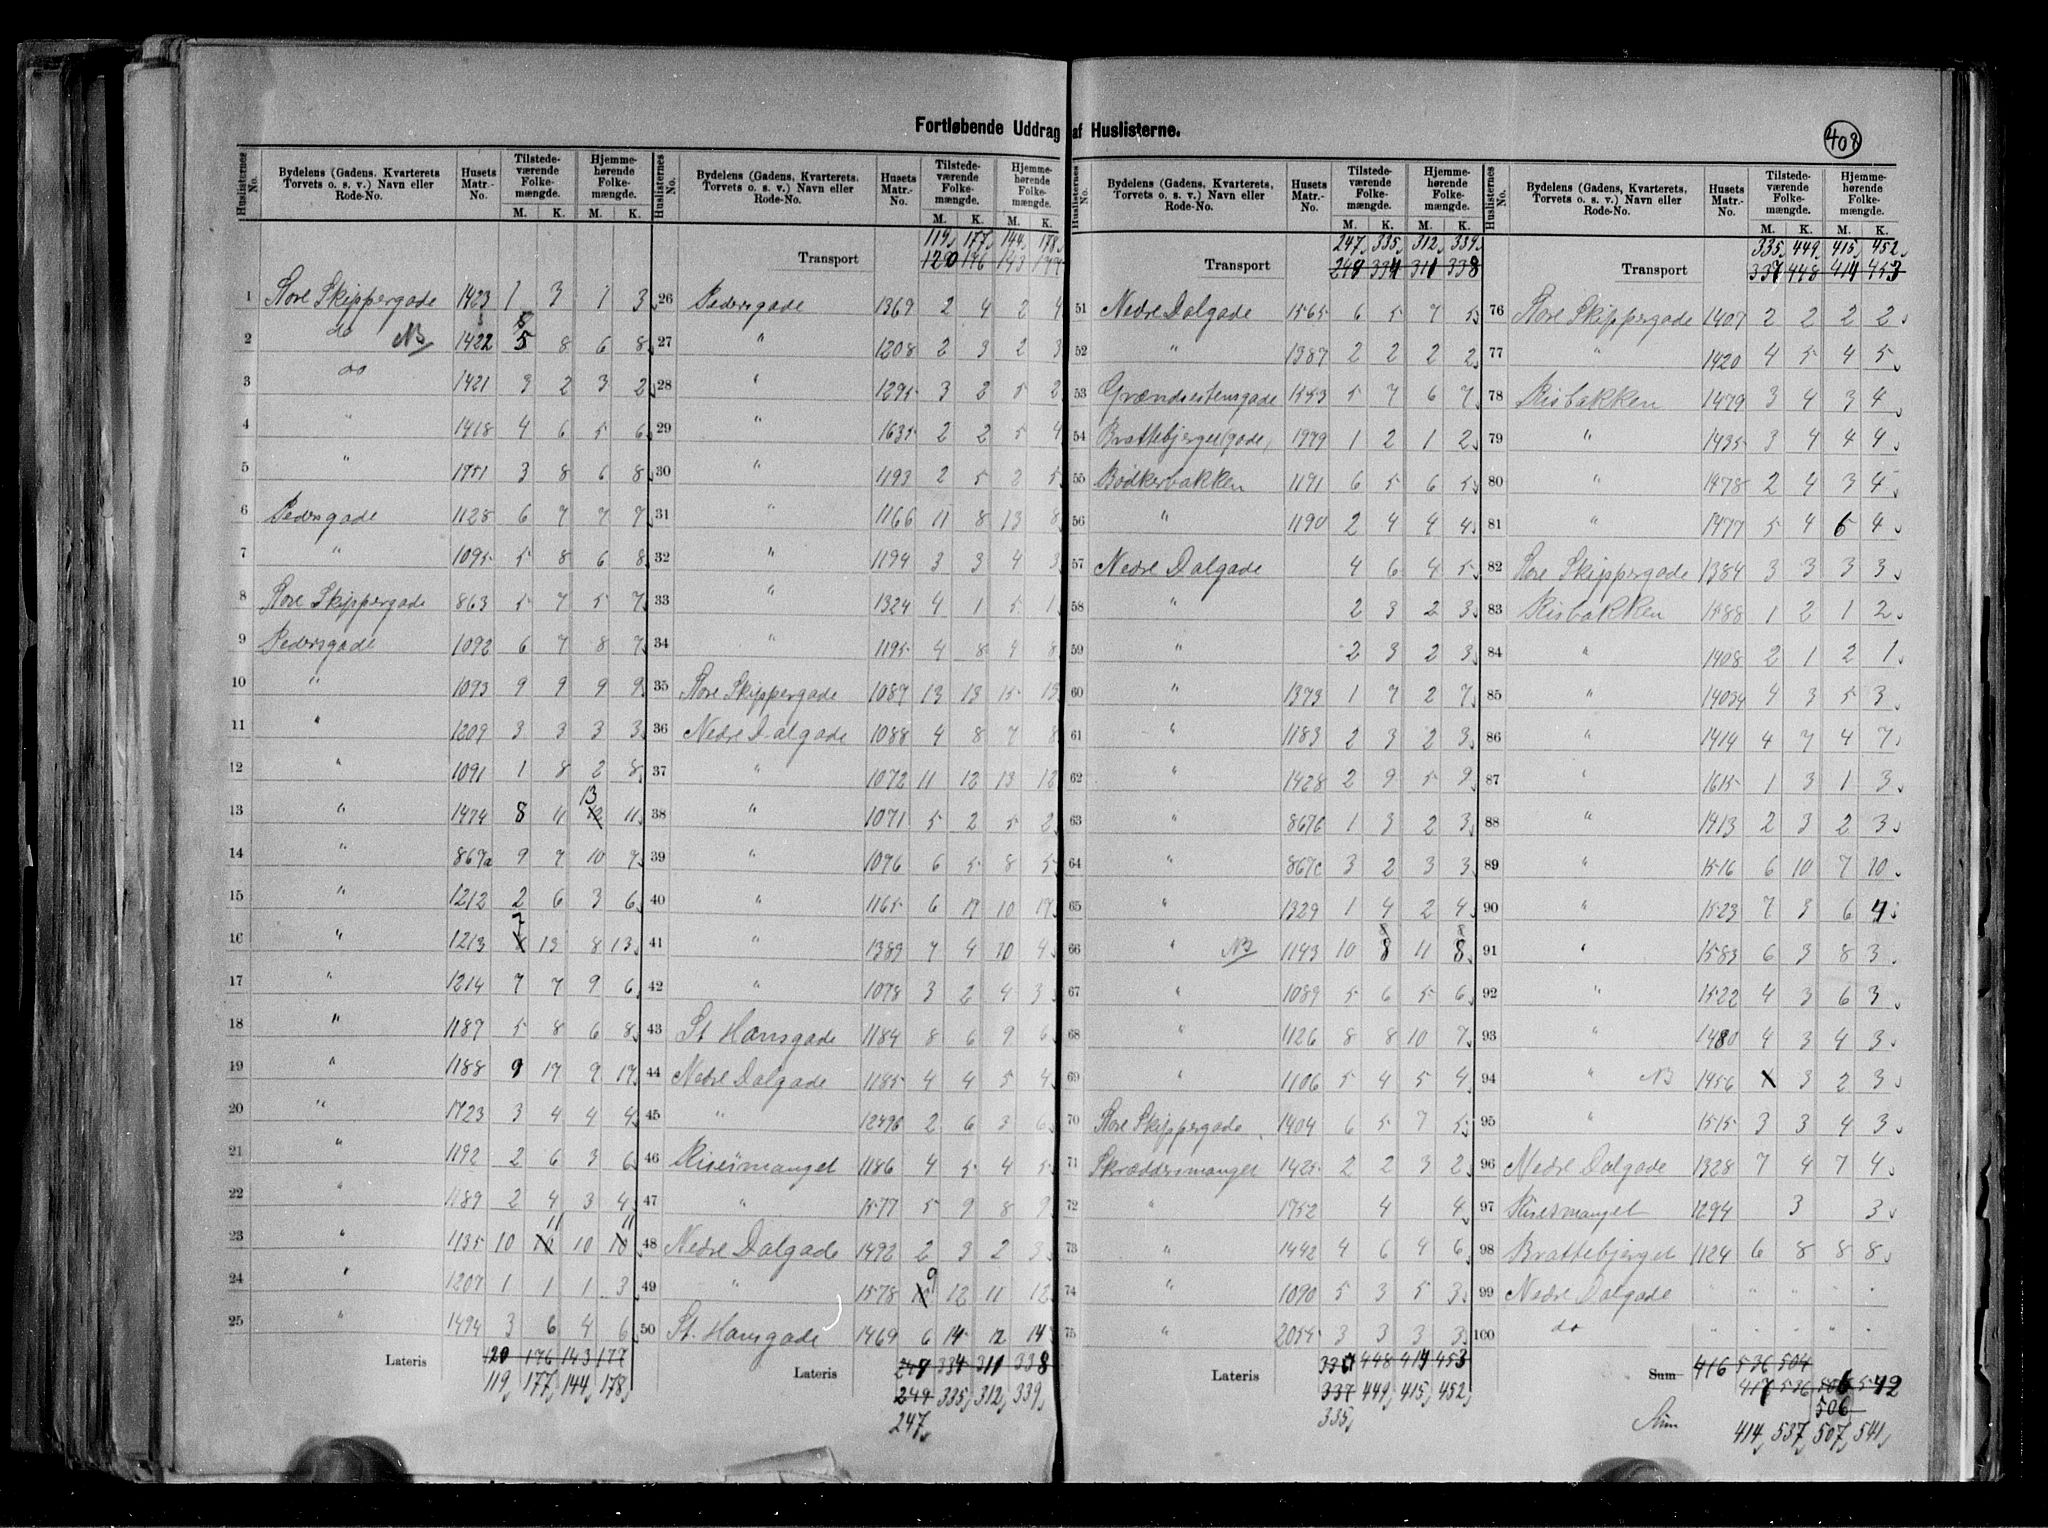 Fortløbende Uddrag af Huslisterne.
408
Huslisternes No. Bydelens (Gadens, Kvarterets, Torvets o. s. v.) Navn eller Rode-No. Husets Matr.-No. Tilstedeværende Folkemængde. M. K. Hjemmehørende Folkemængde. M. K.
1 Store Skippergade 1423 1 3 1 3
2 do NB 1422 5 8 6 8
3 do 1421 3 2 3 2
4 " 1418 4 6 5 6
5 " 1951 3 8 6 8
6 Pedersgade 1128 6 7 7 7
7 " 1095 5 8 6 8
8 Store Skippergade 863 5 7 5 7
9 Pedersgade 1092 6 7 8 7
10 " 1093 9 9 9 9
11 " 1209 3 3 3 3
12 " 1091 1 8 2 8
13 " 1474 8 11 13 11
14 " 867a 9 7 10 7
15 " 1212 2 6 3 6
16 " 1213 7 13 8 13
17 " 1214 7 7 9 6
18 " 1187 5 8 6 8
19 " 1188 9 17 9 17
20 " 1723 3 4 4 4
21 " 1192 2 6 3 6
22 " 1189 2 4 3 4
23 " 1135 10 11 10 11
24 " 1207 1 1 1 3
25 " 1494 3 6 4 6
Lateris 120 176 143 177
119 177 144 178
Huslisternes No. Bydelens (Gadens, Kvarterets, Torvets o. s. v.) Navn eller Rode-No. Husets Matr.-No. Tilstedeværende Folkemængde. M. K. Hjemmehørende Folkemængde. M. K.
119 177 144 178
Transport 120 176 143 177
26 Pedersgade 1369 2 4 2 4
27 " 1208 2 3 2 3
28 " 1295 3 2 5 2
29 " 1635 2 2 5 4
30 " 1193 2 5 2 5
31 " 1166 11 8 13 8
32 " 1194 3 3 4 3
33 " 1324 4 1 5 1
34 " 1195 4 8 4 8
35 Store Skippergade 1087 13 13 15 13
36 Nedre Dalgade 1088 4 8 7 8
37 " 1072 11 12 13 12
38 " 1071 5 2 5 2
39 " 1076 6 5 8 5
40 " 1165 6 17 10 17
41 " 1389 7 4 10 4
42 " 1078 3 2 4 3
43 St Hansgade 1184 8 6 9 6
44 Nedre Dalgade 1185 4 4 5 4
45 " 2 6 3 6
46 1186 4 5 4 5
47 " 1577 5 9 8 9
48 Nedre Dalgade 1492 2 3 2 3
49 " 1578 9 12 11 12
50 St. Hansgade 1469 6 14 12 14
Lateris 248 334 311 338
249 335 312 339
247
Huslisternes No. Bydelens (Gadens, Kvarterets, Torvets o. s. v.) Navn eller Rode-No. Husets Matr.-No. Tilstedeværende Folkemængde. M. K. Hjemmehørende Folkemængde. M. K.
247 335 312 339
Transport 248 334 311 338
51 Nedre Dalgade 1565 6 5 7 5
52 " 1387 2 2 2 2
53 Grændsestensgade 1553 5 7 6 7
54 Brattebjerget (gade) 1979 1 2 1 2
55 Bödkerbakken 1191 6 5 6 5
56 " 1190 2 4 4 4
57 Nedre Dalgade 4 6 4 5
58 " 2 3 2 3
59 " 2 3 2 3
60 " 1373 1 7 2 7
61 " 1183 2 3 2 3
62 " 1428 2 9 5 9
63 " 867b 1 3 2 3
64 " 867c 3 2 3 3
65 " 1329 1 4 2 4
66 " NB 1143 10 8 11 8
67 " 1089 5 6 5 6
68 " 1126 8 8 10 7
69 " 1106 5 4 5 4
70 Store Skippergade 1404 6 5 7 5
71 Skræddersmauget 1425 2 2 3 2
72 " 1752 4 4
73 " 1442 4 6 4 6
74 " 1090 5 3 5 3
75 " 2054 3 3 3 3
Lateris 336 448 414 453
337 449 415 452
335
Huslisternes No. Bydelens (Gadens, Kvarterets, Torvets o. s. v.) Navn eller Rode-No. Husets Matr.-No. Tilstedeværende Folkemængde. M. K. Hjemmehørende Folkemængde. M. K.
335 449 415 452
Transport 337 448 414 453
76 Store Skippergade 1407 2 2 2 2
77 " 1420 4 5 4 5
78 Risbakken 1479 3 4 3 4
79 " 1435 3 4 4 4
80 " 1478 2 4 3 4
81 " 1477 5 4 6 4
82 Store Skippergade 1384 3 3 3 3
83 Risbakken 1588 1 2 1 2
84 " 1408 2 1 2 1
85 " 4 3 5 3
86 " 1414 4 7 4 7
87 " 1615 1 3 1 3
88 " 1413 2 3 2 3
89 " 1516 6 10 7 10
90 " 1523 7 3 6 4
91 " 1583 6 3 8 3
92 " 1522 4 3 6 3
93 " 1480 4 3 4 3
94 " NB 1456 1 3 2 3
95 " 1515 3 3 4 3
96 Nedre Dalgade 1328 7 4 7 4
97 Risesmauget 1294 3 3
98 Brattebjerget 1124 6 8 8 8
99 Nedre Dalgade " " " " "
100 do " " " " "
Sum 416 536 504
417 536 506 542
506
Sum 414 537 507 541